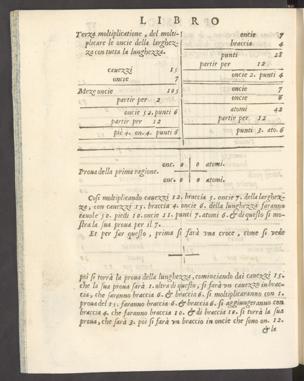 LIBRO
Terza moltiplicatione, del molti-
plicare le oncie della larghez-
za con tutta la lunghezza.
cauezzi 15
oncie 7
Mezeoncie 105
partir per 2
oncie 52. punti 6
partir per 12
pie 4. on. 4. punti 6
oncie 7
braccia 4
punti 28
partir per 12
oncie 2. punti 4
oncie 7
oncie 6
atomi 42
partir per 12
punti 3. ato. 6
onc. 0 0 atomi.
Prova della prima ragione.
onc. 0 0 atomi.
Così multiplicando cauezzi 12. braccia 5. oncie 7. della larghez-
za, con cauezzi 15. braccia 4. oncie 6. della lunghezza faranno
tauole 50. piedi 10. oncie 11. punti 7. atomi 6. & di questo si mo-
stra la sua proua per il 7.
Et per far questo, prima si farà vna croce, come si vede
poi si torrà la proua della lunghezza, cominciando dai cauezzi 15.
che la sua proua sarà 1. oltra di questo, si farà vn cauezzo in brac-
cia, che saranno braccia 6. & braccia 6. si moltiplicaranno con 1.
proua del 15. faranno braccia 6. & braccia 6. si aggiungeranno con
braccia 4. che faranno braccia 10. & di braccia 10. si torrà la sua
proua, che sarà 3. poi si farà vn braccio in oncie che sono on. 12.
& la